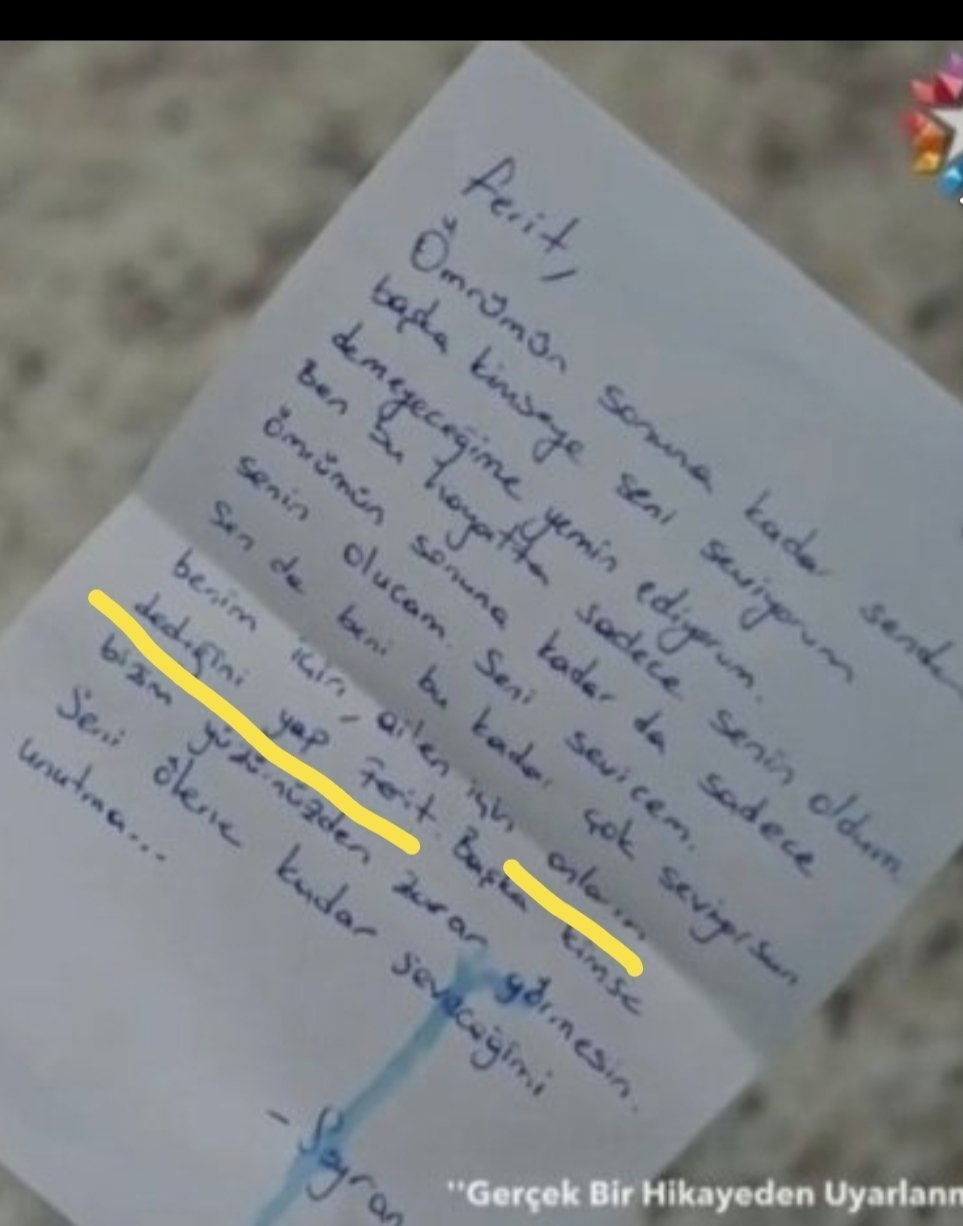 Ferit,
Ömrümün sonuna kadar senden
başka kimseye seni seviyorum
demeyeceğime yemin ediyorum.
Ben bu hayatta sadece senin oldum
ömrümün sonuna kadar da sadece
senin olucam. Seni sevicem.
Sen de beni bu kadar çok seviyorsan
benim için, ailen için onların
dediğini yap Ferit. Başka kimse
bizim yüzümüzden zarar görmesin.
Seni ölene kadar seveceğimi
unutma...
- Seyran
"Gerçek Bir Hikayeden Uyarlanm